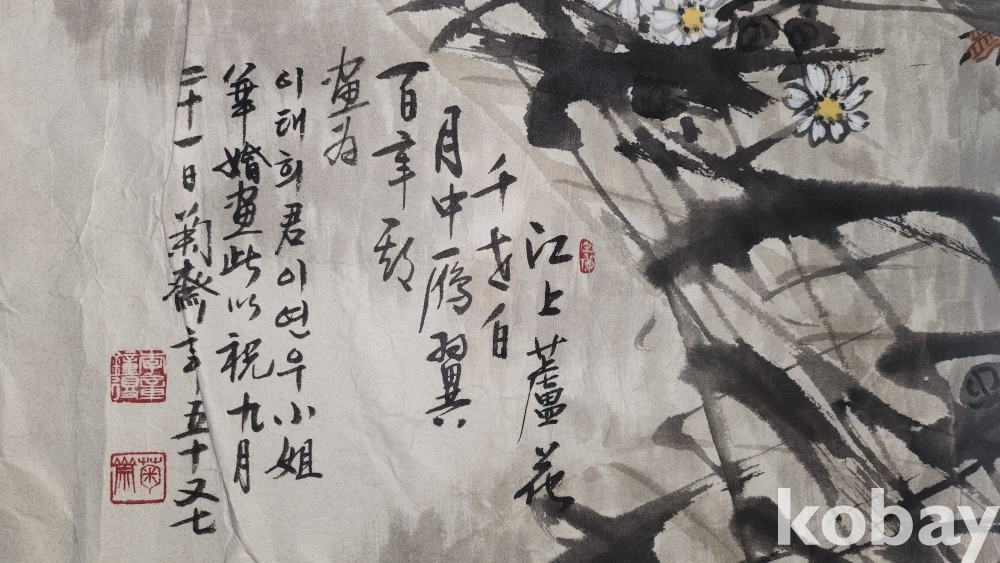 江上蘆花
千
月中鴈翼
百年
畫為
이태희君이연우小姐
華婚畫此以祝九月
二十一日菊齋年五十又七
kobay